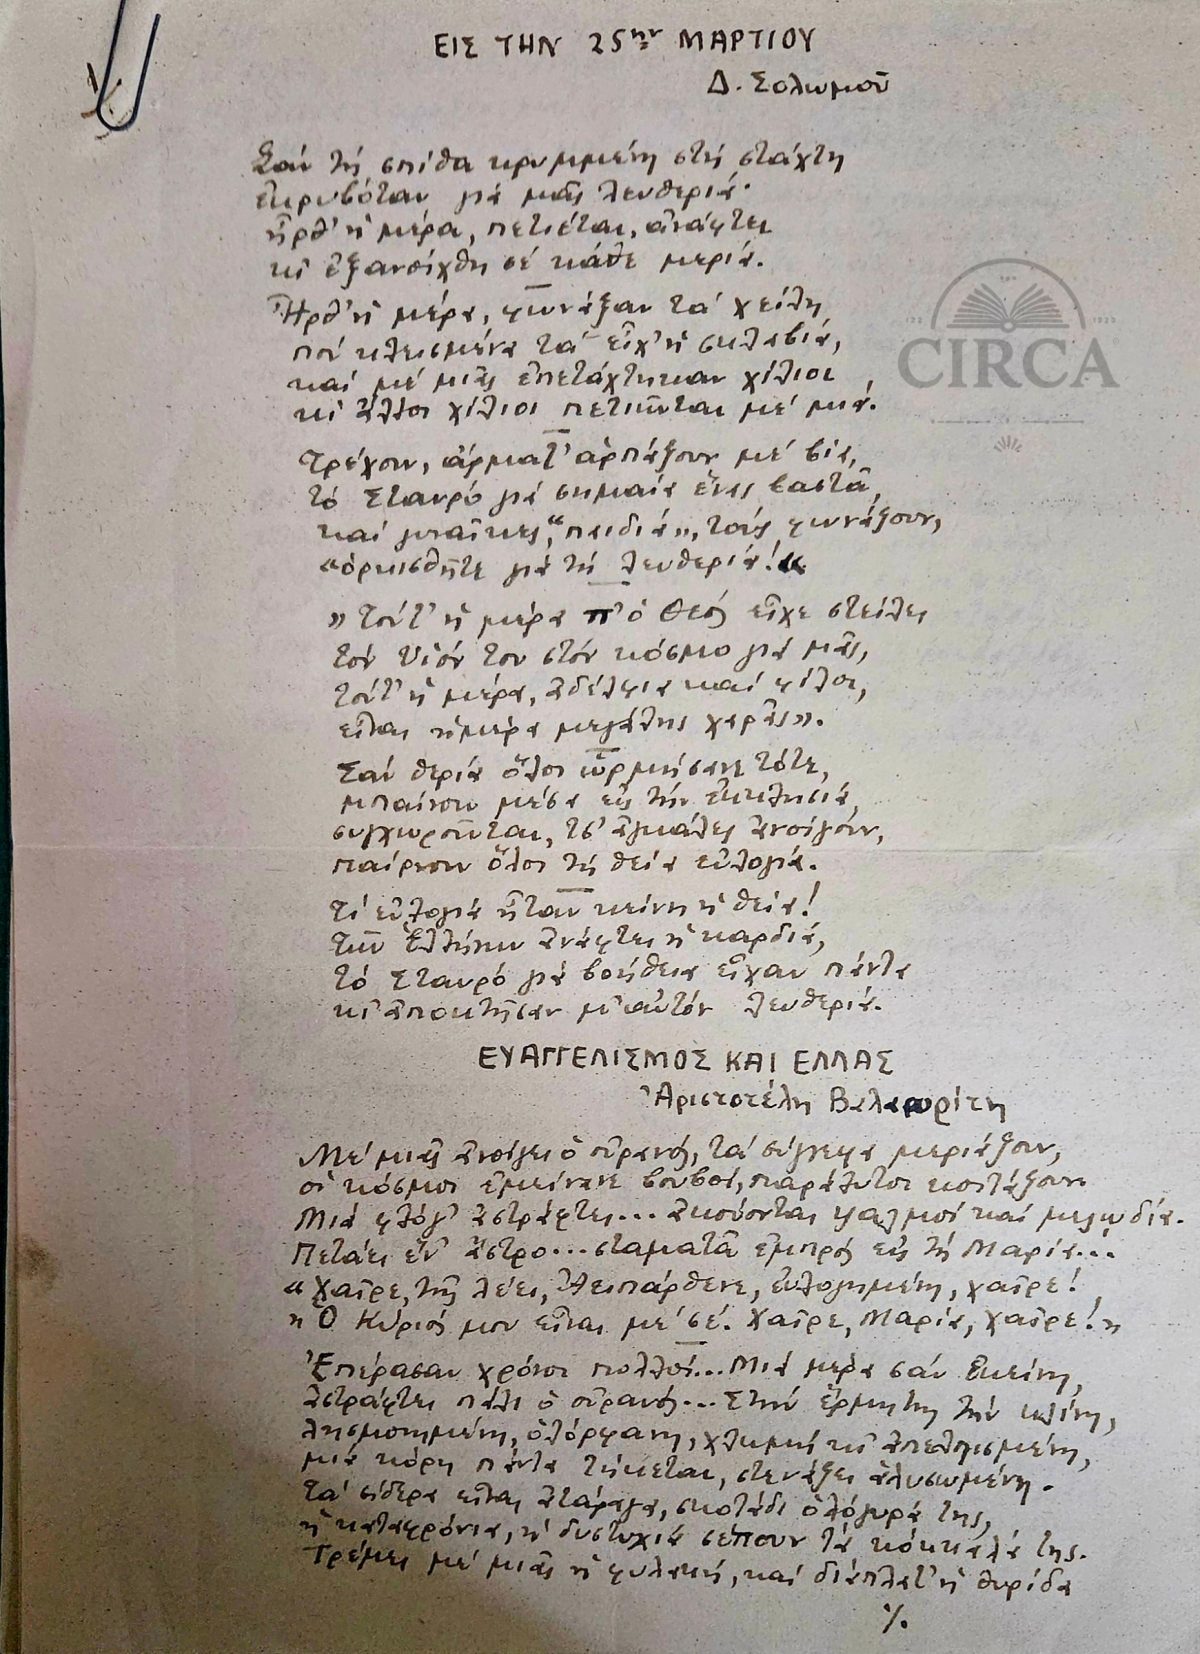 ΕΙΣ ΤΗΝ 25ην ΜΑΡΤΙΟΥ
Δ. Σολωμοῦ
Σάν τή σπίθα κρυμμένη στή στάχτη
ἐκρυβόταν γιά μᾶς λευθεριά·
ἦρθ' ἡ μέρα, πετιέται, ἀνάφτει
κι ἐξανοίχθη σέ κάθε μεριά.
Ἦρθ' ἡ μέρα, φωνάξαν τά χείλη
πού κλεισμένα τά εἶχ' ἡ σκλαβιά,
καί μέ μιᾶς ἐπετάχτηκαν χίλιοι
κι ἄλλοι χίλιοι πετιοῦνται μέ μιά.
Τρέχουν, ἄρματ' ἁρπάζουν μέ βία,
τό Σταυρό γιά σημαία ἕνας βαστᾶ,
καί γυναῖκες, "παιδιά", τούς φωνάζουν,
«ὁρκισθῆτε γιά τή λευθεριά!«
» Τούτ' ἡ μέρα π' ὁ Θεός εἶχε στείλει
τόν Υἱόν του στόν κόσμο γιά μᾶς,
τούτ' ἡ μέρα, ἀδέλφια καί φίλοι,
εἶναι ἡμέρα μεγάλης χαρᾶς».
Σάν θεριά ὅλοι ὡρμήσανε τότε,
μπαίνουν μέσα εἰς τήν ἐκκλησιά
συγχωροῦνται, τσ' ἀγκάλες ἀνοίγουν,
παίρνουν ὅλοι τή θεία εὐλογιά.
Τί εὐλογιά ἦταν κείνη ἡ θεία!
τῶν Ἑλλήνων ἀνάφτει ἡ καρδιά,
τό Σταυρό γιά βοήθεια εἶχαν πάντα
κι ἀποκτῆσαν μ' αὐτόν λευθεριά.
ΕΥΑΓΓΕΛΙΣΜΟΣ ΚΑΙ ΕΛΛΑΣ
Ἀριστοτέλη Βαλαωρίτη
Μέ μιᾶς ἀνοίγει ὁ οὐρανός, τά σύγνεφα μεριάζουν,
οἱ κόσμοι ἐμείνανε βουβοί, παράλυτοι κοιτάζουν.
Μιά φλόγ' ἀστράφτει... ἀκούονται ψαλμοί καί μελωδία.
Πετάει ἕν' ἄστρο... σταματᾶ ἐμπρός εἰς τή Μαρία...
«Χαῖρε, τῆς λέει, Ἀειπάρθενε, εὐλογημένη, χαῖρε!
» Ὁ Κύριός μου εἶναι μέ σέ. Χαῖρε, Μαρία, χαῖρε!»
Ἐπέρασαν χρόνοι πολλοί... Μιά μέρα σάν ἐκείνη,
ἀστράφτει πάλι ὁ οὐρανός... Στήν ἔρμη της τήν κλίνη,
λησμονημένη, ὁλόρφανη, χλωμή κι ἀπελπισμένη,
μιά κόρη πάντα τήκεται, στενάζει ἁλυσωμένη.
Τά σίδερα εἶναι ἀτάραγα, σκοτάδι ὁλόγυρά της,
ἡ καταφρόνια, ἡ δυστυχιά σέπουν τά κόκκαλά της.
Τρέμει μέ μιᾶς ἡ φυλακή, καί διάπλατ' ἡ θυρίδα
٪.
CIRCA